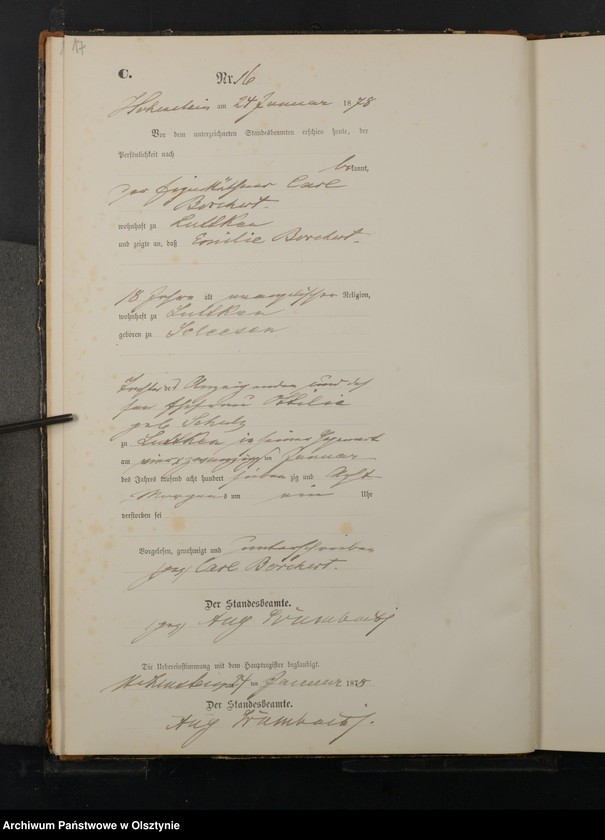 17
C.
Nr. 16
Hohenstein am 24 Januar 1878
Vor dem unterzeichneten Standesbeamten erschien heute, der
Persönlichkeit nach
bekannt,
der Eigenkäthner Carl
Borchert.
wohnhaft zu Lullken
und zeigte an, daß Emilie Borchert.
18 Jahre alt evangelischer Religion,
wohnhaft zu Lullken
geboren zu
Tochter des Anzeigenden und des
sen Ehefrau Ottilie
geb Schulz
zu Lullken in seiner Gegenwart
am vierundzwanzigsten Januar
des Jahres tausend acht hundert siebenzig und Acht
Morgens um ein Uhr
verstorben sei
Vorgelesen, genehmigt und unterschrieben
gez Carl Borchert.
Der Standesbeamte.
gez Aug Grumbach
Die Uebereinstimmung mit dem Hauptregister beglaubigt.
Hohenstein 24 ten Januar 1878
Der Standesbeamte.
Aug Grumbach.
Archiwum Państwowe w Olsztynie